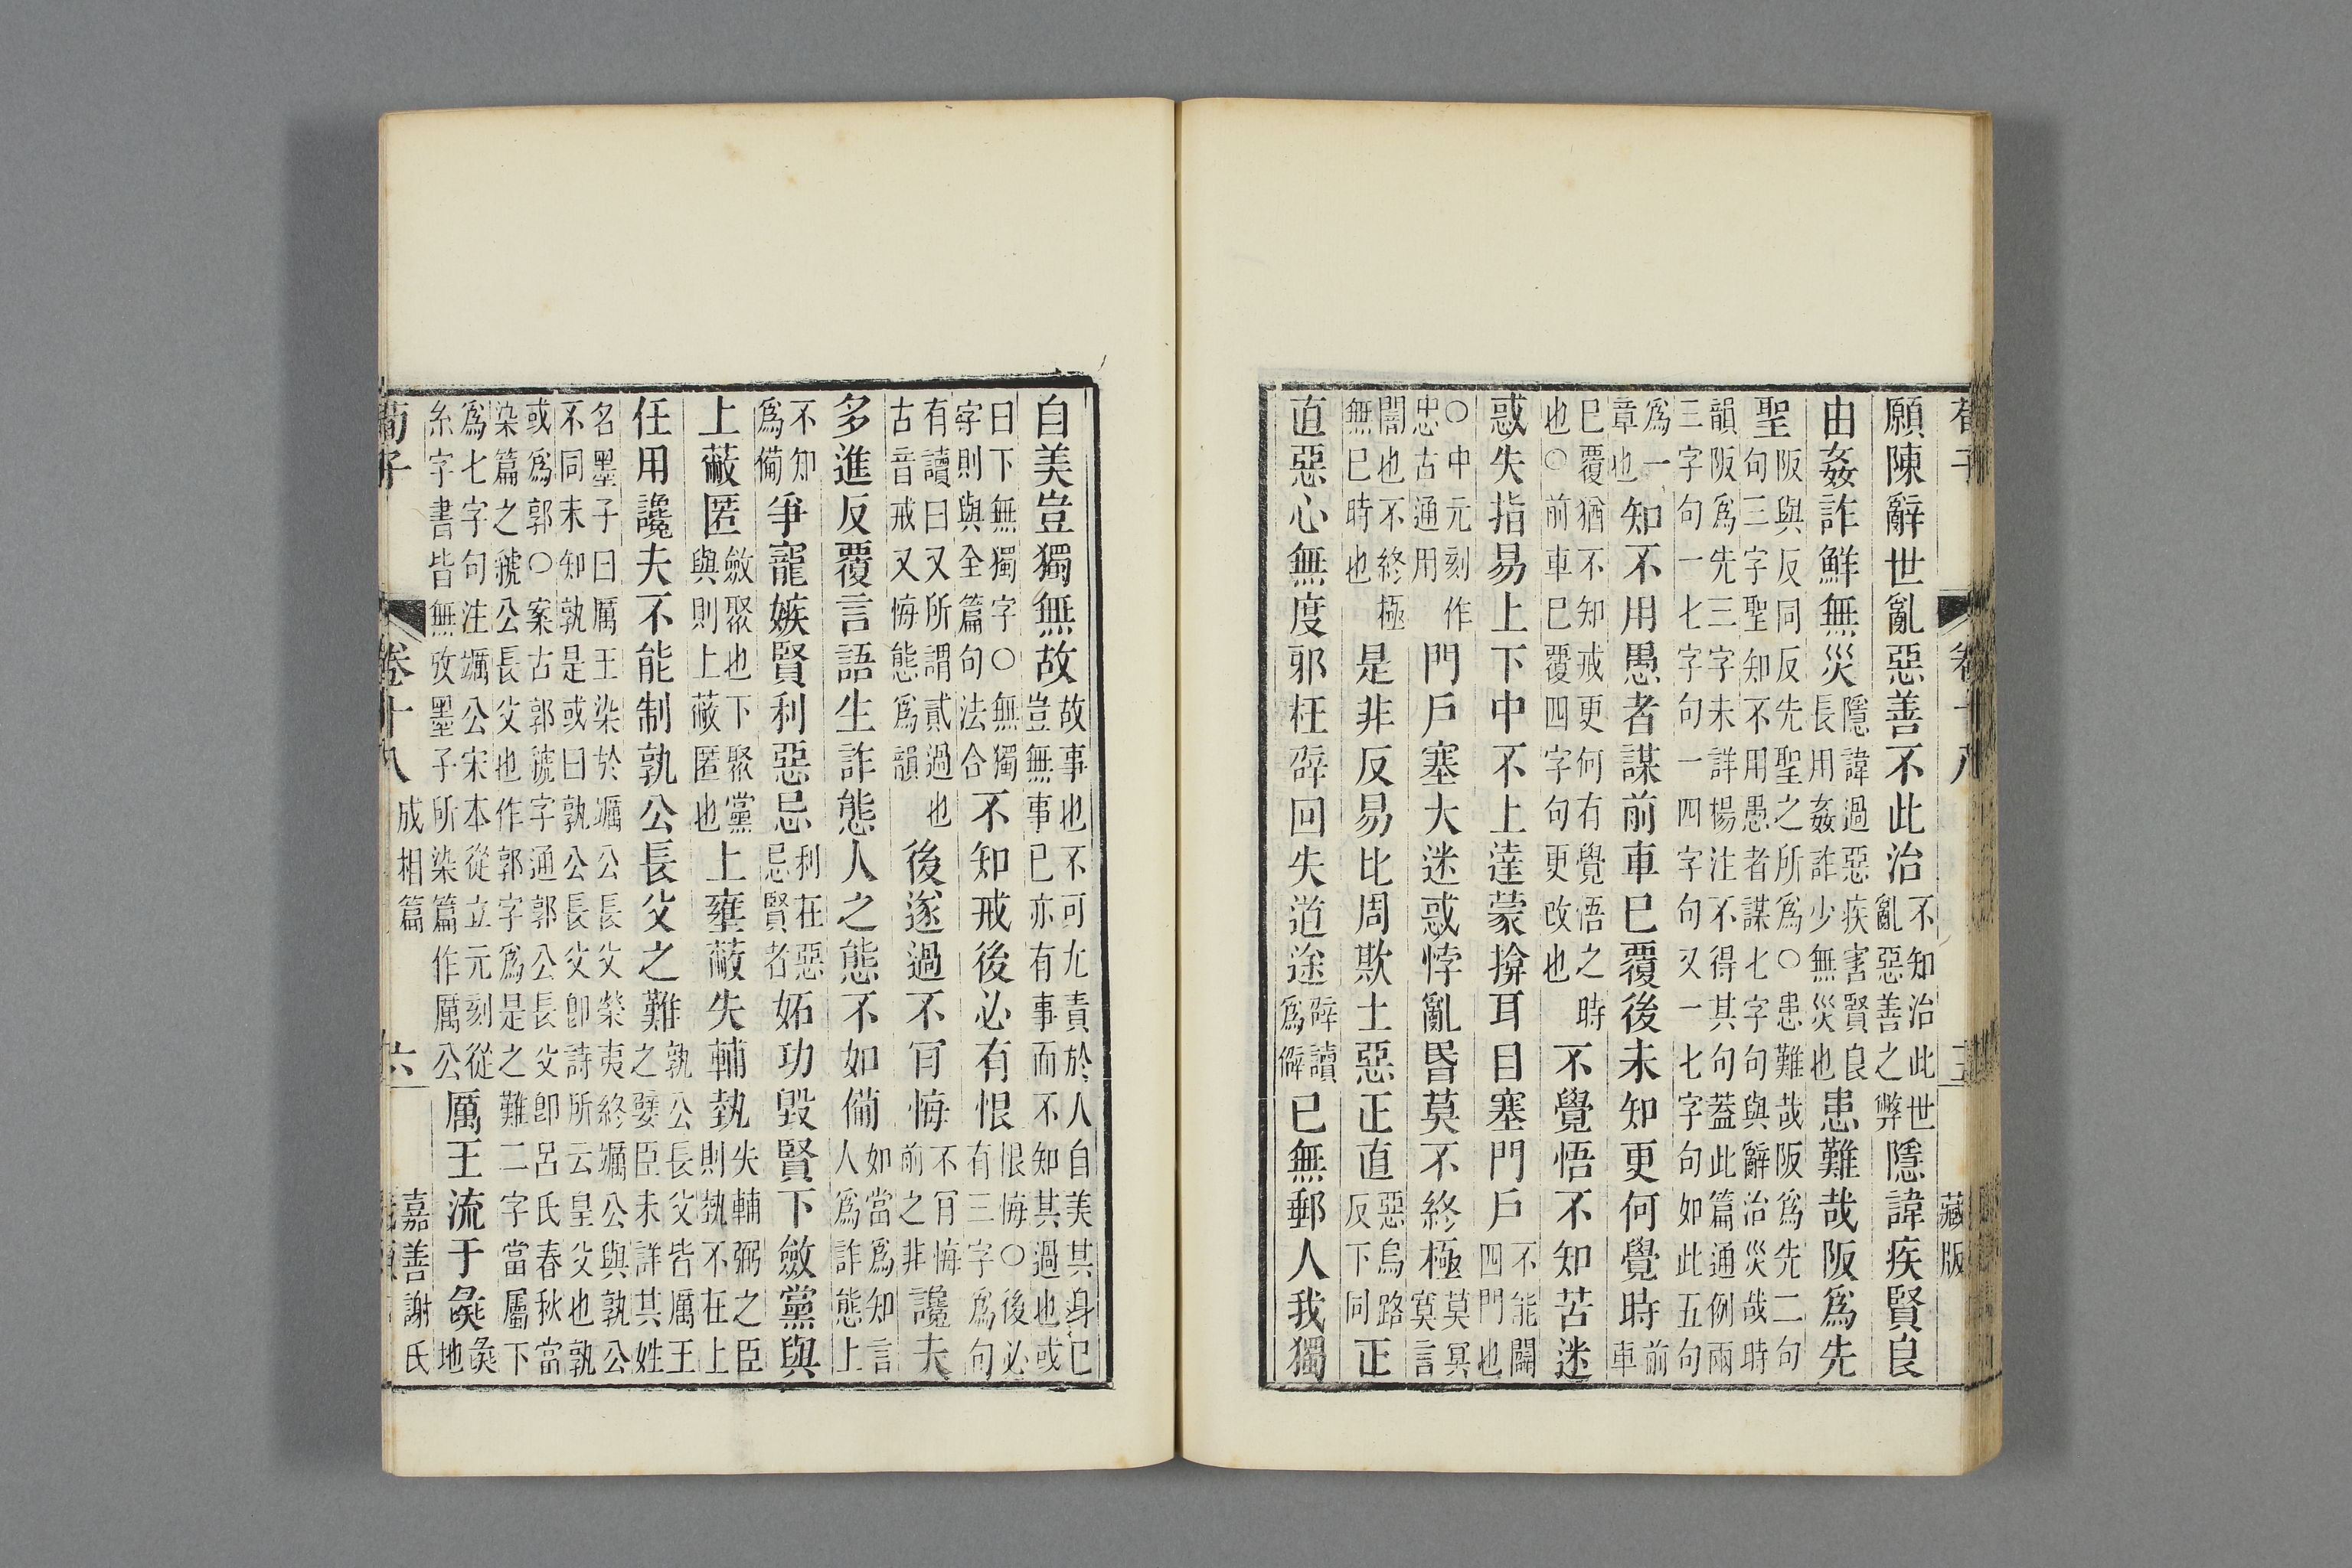 荀子 卷十八 五 藏版
願陳辭世亂惡善不此治不知治此世亂惡善之弊隱諱疾賢良
由姦詐鮮無災隱諱過惡疾害賢良長用姦詐少無災也患難哉阪爲先
聖阪與反同反先聖之所爲○患難哉阪爲先二句句三字聖知不用愚者謀七字句與辭治災哉時
韻阪爲先三字未詳楊注不得其句蓋此篇通例兩三字句一七字句一四字句又一七字句如此五句
爲一章也知不用愚者謀前車已覆後未知更何覺時前車
已覆猶不知戒更何有覺悟之時也○前車已覆四字句更改也不覺悟不知苦迷
惑失指易上下中不上達蒙揜耳目塞門戶不能闢四門也
○中元刻作忠古通用門戶塞大迷惑悖亂昬莫不終極莫冥寞言
闇也不終極無已時也是非反易比周欺上惡正直惡烏路反下同正
直惡心無度邪枉辟回失道途辟讀爲僻已無郵人我獨
自美豈獨無故故事也不可尤責於人自美其身已豈無事已亦有事而不知其過也或
曰下無獨字○無獨字則與全篇句法合不知戒後必有恨恨悔○後必有三字爲句
有讀曰又所謂貳過也古音戒又悔態爲韻後遂過不肎悔不肎悔前之非讒夫
多進反覆言語生詐態人之態不如僃如當爲知言人爲詐態上
不知爲僃爭寵嫉賢利惡忌利在惡忌賢者妬功毀賢下斂黨與
上蔽匿斂聚也下聚黨與則上蔽匿也上壅蔽失輔埶失輔弼之臣則埶不在上
任用讒夫不能制孰公長父之難孰公長父皆厲王之嬖臣未詳其姓
名墨子曰厲王染於蠣公長父榮夷終蠣公與孰公不同未知孰是或曰孰公長父卽詩所云皇父也孰
或爲郭○案古郭虢字通郭公長父卽呂氏春秋當染篇之虢公長父也作郭字爲是之難二字當屬下
爲七字句注蠣公宋本從立元刻從糸字書皆無攷墨子所染篇作厲公厲王流于彘彘地
荀子 卷十八 成相篇 六 嘉善謝氏